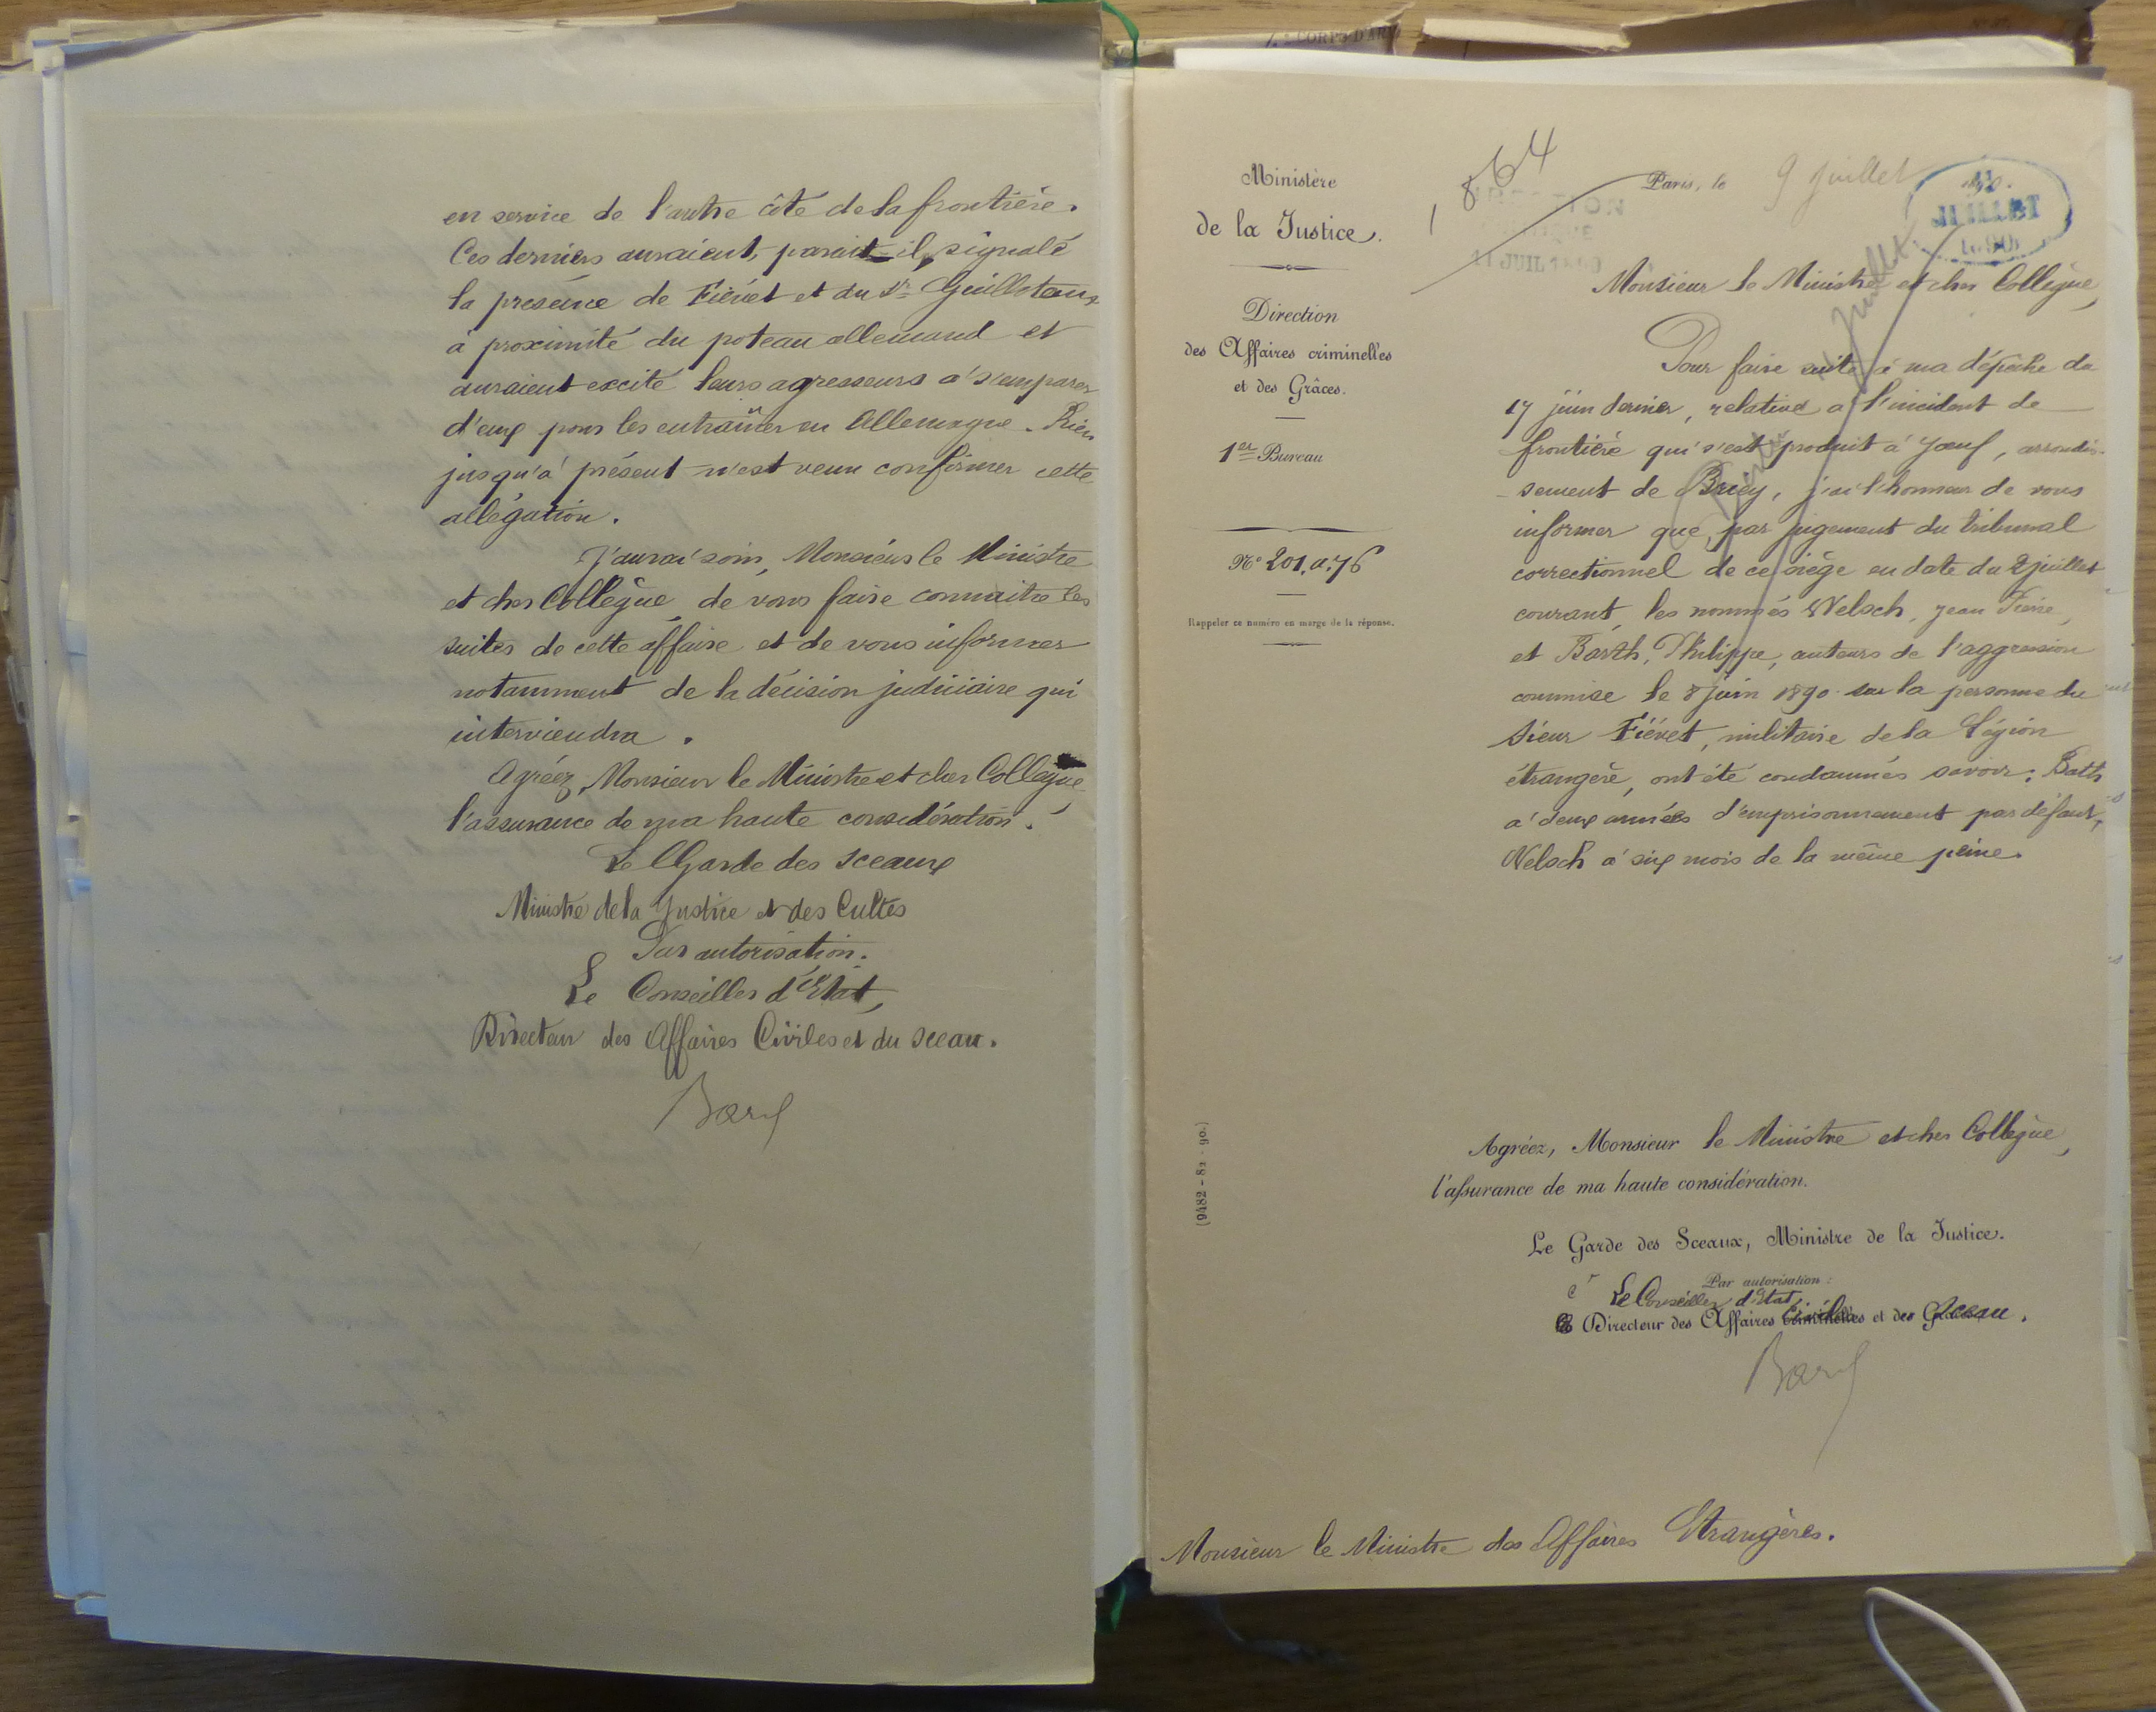 en service de l'autre côté de la frontière.
Ces derniers auraient, parait-il, signalé
la présence de Fiévet et du Sr Guilloteaux
à proximité du poteau allemand et
auraient excité leurs agresseurs à s'emparer
d'eux pour les entraîner en Allemagne. Rien
jusqu'à présent n'est venu confirmer cette
allégation.
J'aurai soin, Monsieur le Ministre
et cher Collègue, de vous faire connaitre les
suites de cette affaire et de vous informer
notamment de la décision judiciaire qui
interviendra.
Agréez, Monsieur le Ministre et cher Collègue,
l'assurance de ma haute considération.
Le Garde des Sceaux
Ministre de la Justice et des Cultes
Par autorisation.
Le Conseiller d'Etat,
Directeur des Affaires Civiles et du Sceau.
1,864
Ministère
de la Justice.
Direction
des Affaires criminelles
et des Grâces.
1er Bureau
No 201.a.76
Rappeler ce numéro en marge de la réponse.
(9482-82-90.)
Paris, le 9 Juillet
11 JUIL 1890
JUILLET
1890
Monsieur le Ministre et cher Collègue,
Pour faire suite à ma dépêche du
17 juin dernier, relative à l'incident de
frontière qui s'est produit à Joeuf, arrondis-
-sement de Briey, j'ai l'honneur de vous
informer que, par jugement du tribunal
correctionnel de ce siège en date du 2 juillet
courant, les nommés Welsch, Jean Pierre,
et Barth, Philippe, auteurs de l'aggression
commise le 8 juin 1890 sur la personne du
sieur Fiévet, militaire de la Légion
étrangère, ont été condamnés savoir: Barth
à deux années d'emprisonnement par défaut,
Welsch à six mois de la même peine.
Agréez, Monsieur le Ministre et cher Collègue,
l'assurance de ma haute considération.
Le Garde des Sceaux, Ministre de la Justice.
Par autorisation:
Le Conseiller d'Etat,
Directeur des Affaires Civiles et du Sceau.
Monsieur le Ministre des Affaires Etrangères.